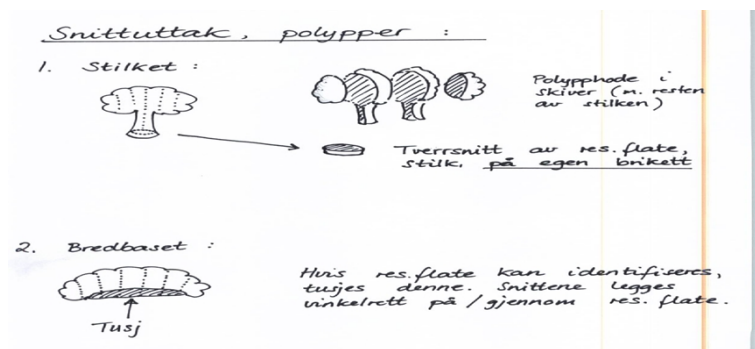 Snittuttak, polypper :
1. Stilket :
Polypphode i
skiver (m. resten
av stilken)
Tverrsnitt av res.flate,
stilk, på egen brikett
2. Bredbaset :
Hvis res.flate kan identifiseres,
tusjes denne. Snittene legges
vinkelrett på / gjennom res. flate.
Tusj